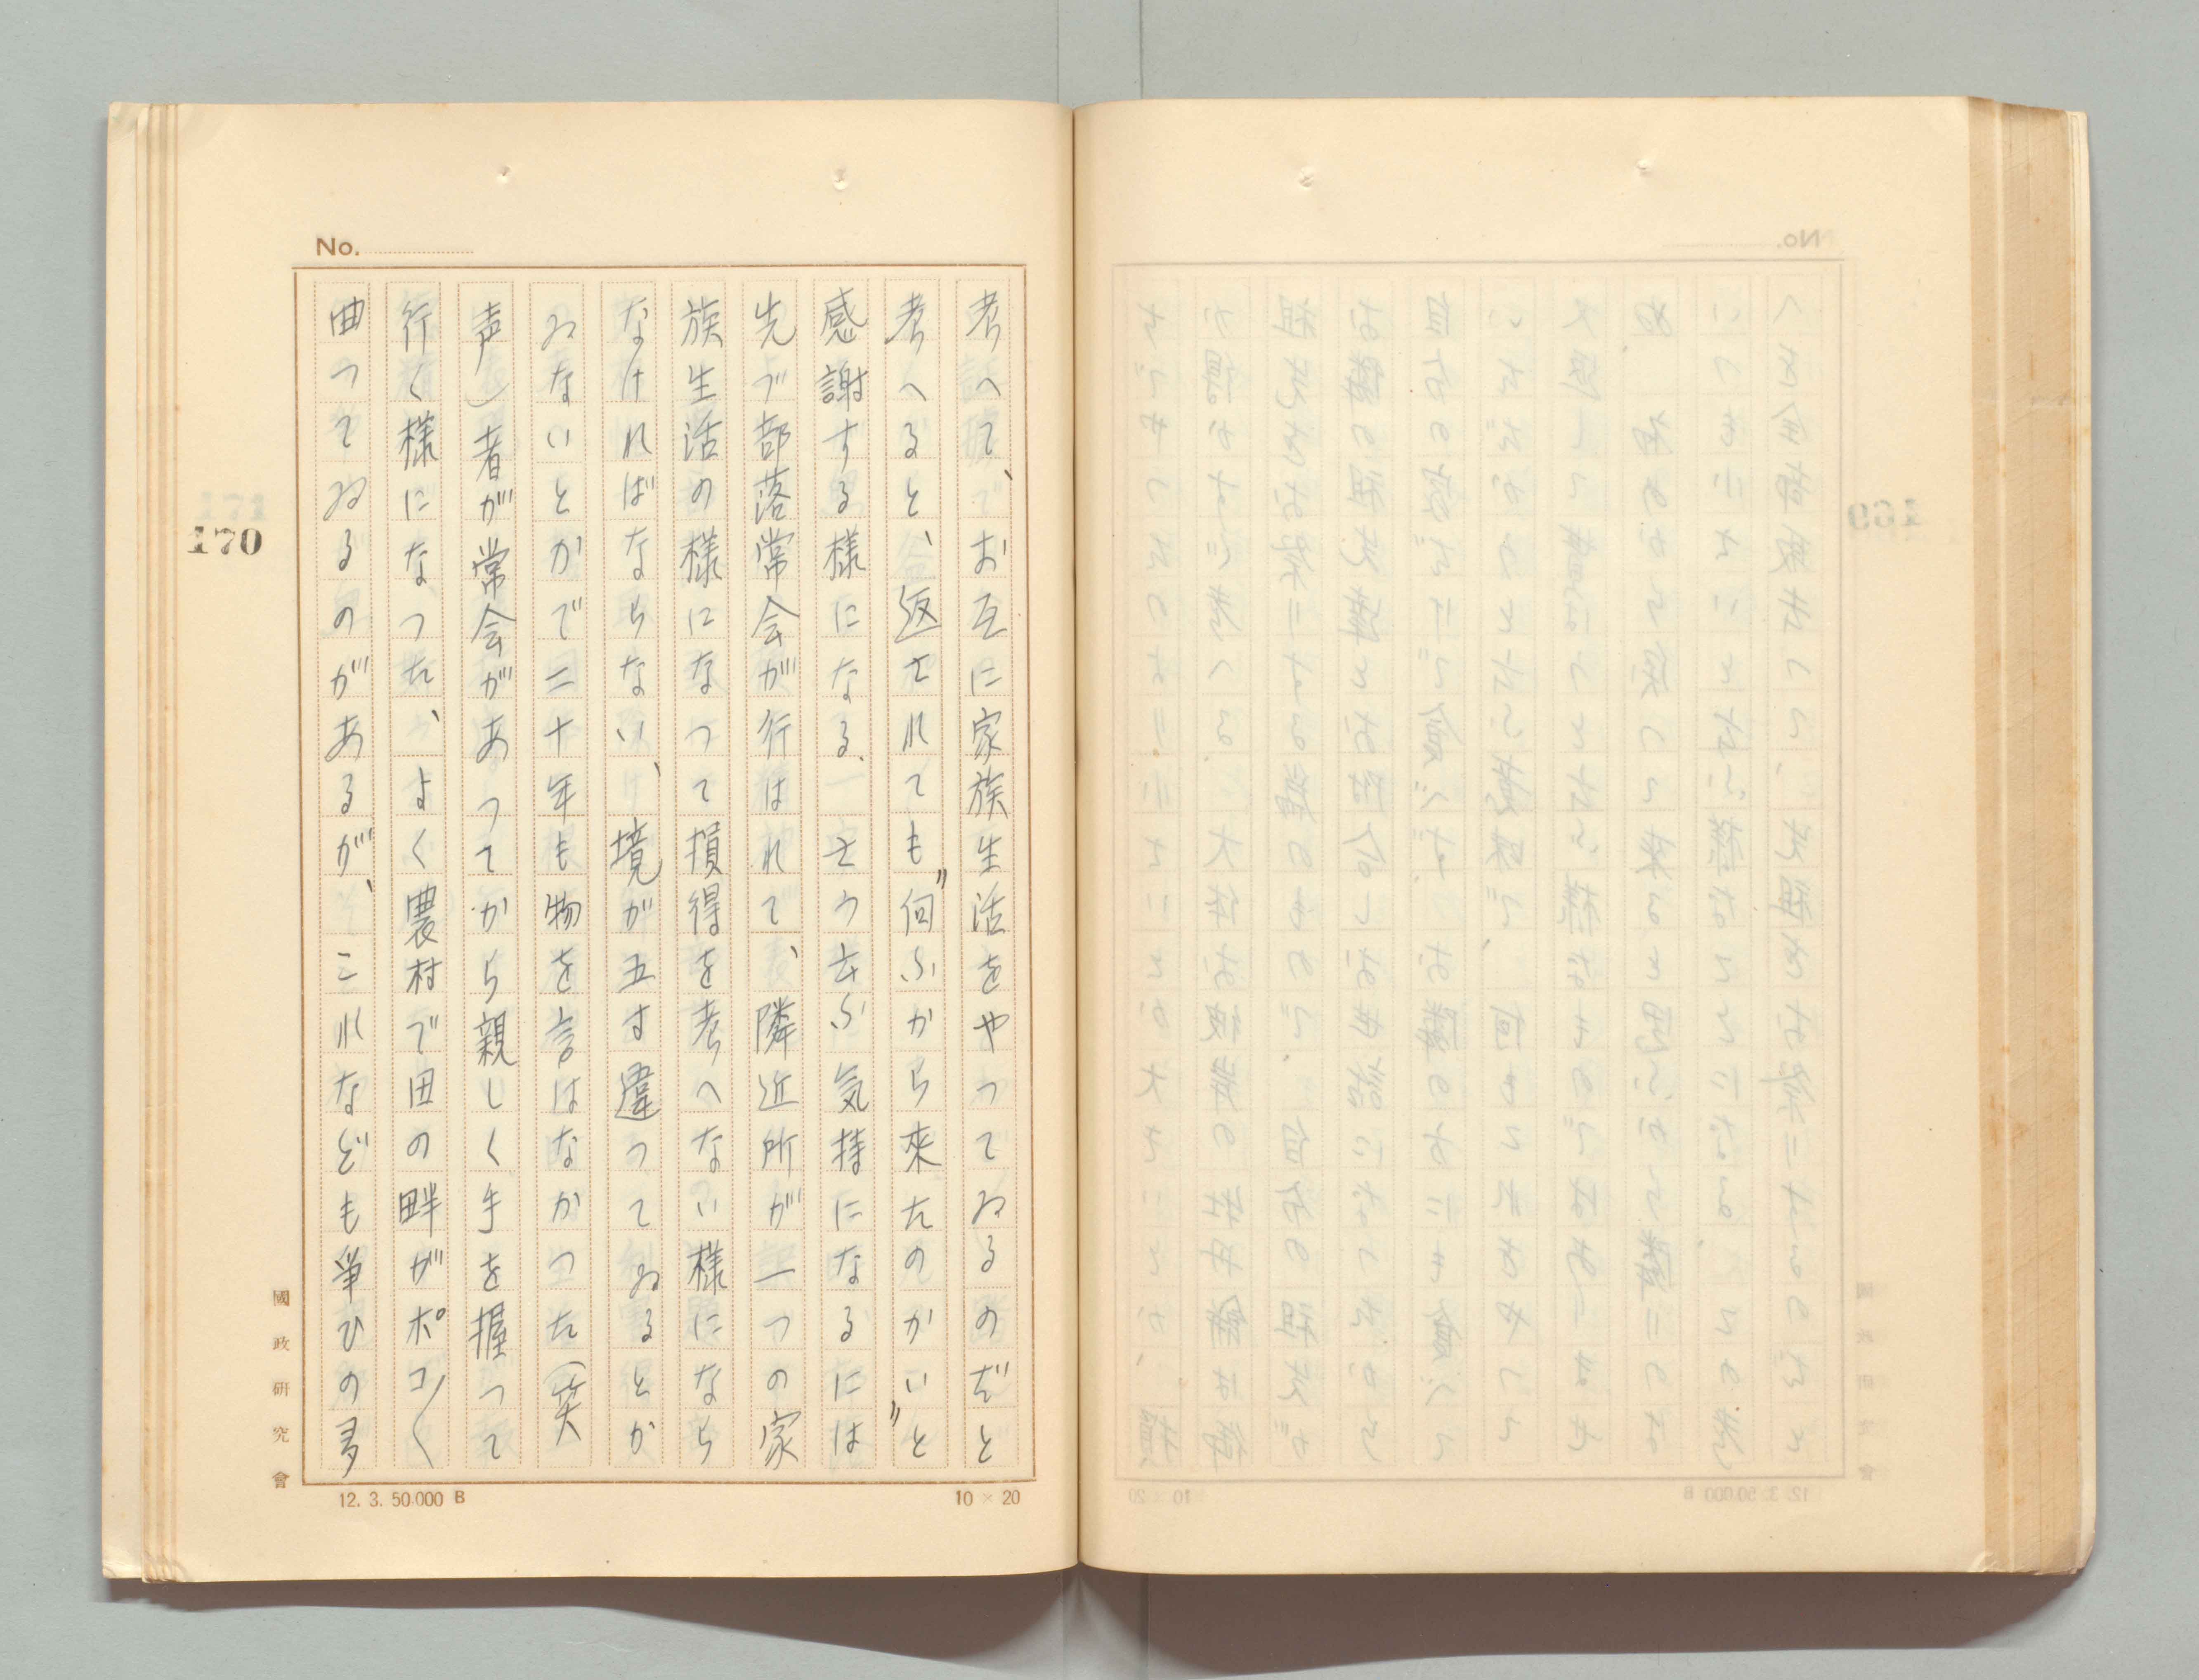 No.
考へて、お互に家族生活をやつてゐるのだと
考へると、返されても〝何ふから来たのかい〟と
感謝する様になる、さう云ふ気持になるには
先づ部落常会が行はれて、隣近所が一つの家
族生活の様になつて損得を考へない様になら
なければならない、境が五寸違つてゐるとか
ゐないとかで二十年も物を言はなかつた(笑
声)者が常会があつてから親しく手を握つて
行く様になつた、よく農村で田の畔がポコ〳〵
曲つてゐるのがあるが、これなども争ひの多
170
國政研究會
12. 3. 50.000 B
10 × 20